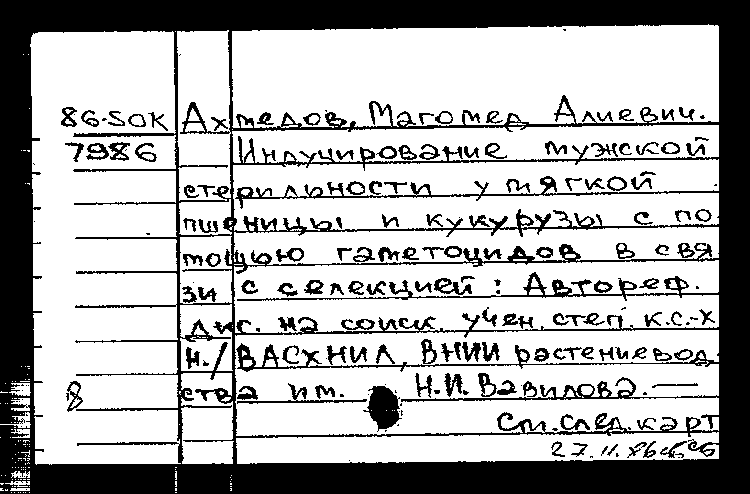 86-SOK Ахмедов, Магомед Алиевич.
7986 Индуцирование мужской
стерильности у мягкой
пшеницы и кукурузы с по-
мощью гаметоцидов в свя
зи с селекцией: Автореф.
дис. на соиск. учен. степ. к.с.-х
н./ ВАСХНИЛ, ВНИИ растениевод-
8 ства им. Н.И. Вавилова. —
См. след. карт
27.11.86